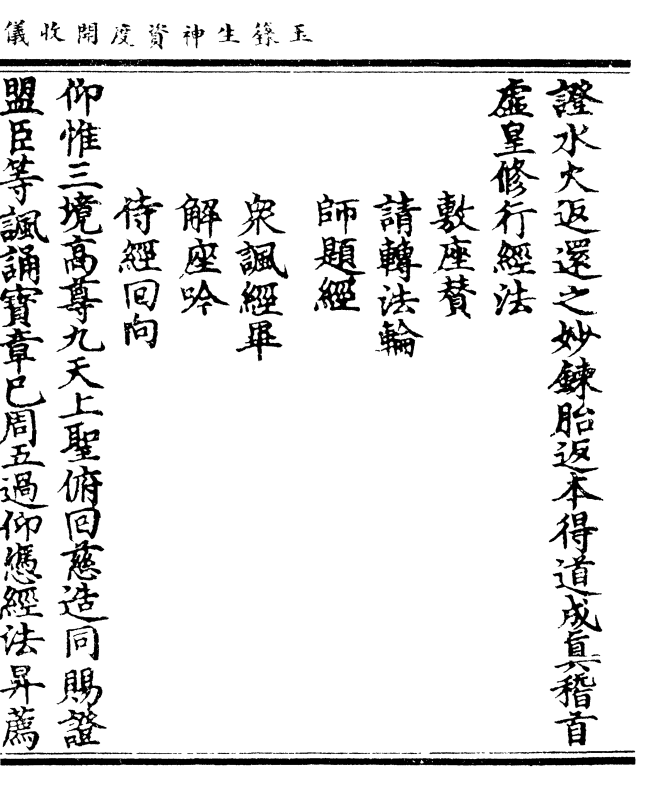 玉籙生神資度開收儀
證水火返還之妙鍊胎返本得道成真稽首
虛皇修行經法
敷座賛
請轉法輪
師題經
衆諷經畢
解座吟
侍經回向
仰惟三境高尊九天上聖俯回慈造同賜證
盟臣等諷誦寶章已周五過仰憑經法昇薦